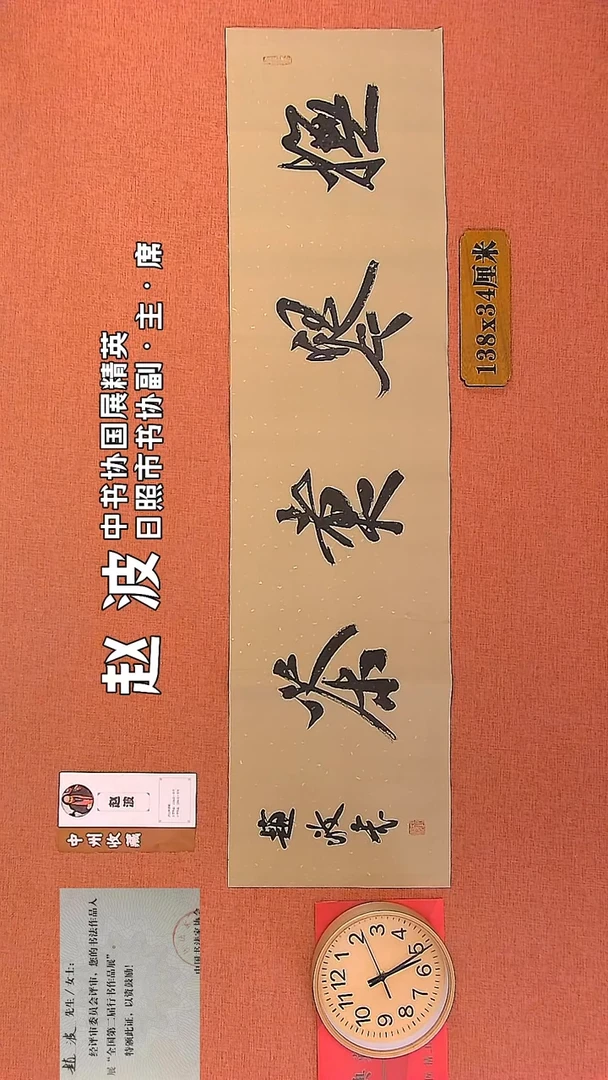 赵波
中书协国展精英
日照市书协副·主·席
赵波书
138x34厘米
赵波
中州收藏
赵波 先生/女士:
经评审委员会评审,您的书法作品入
展“全国第二届行书作品展”。
特颁此证,以资鼓励!
中国书法家协会
12
1
2
3
4
5
6
7
8
9
10
11